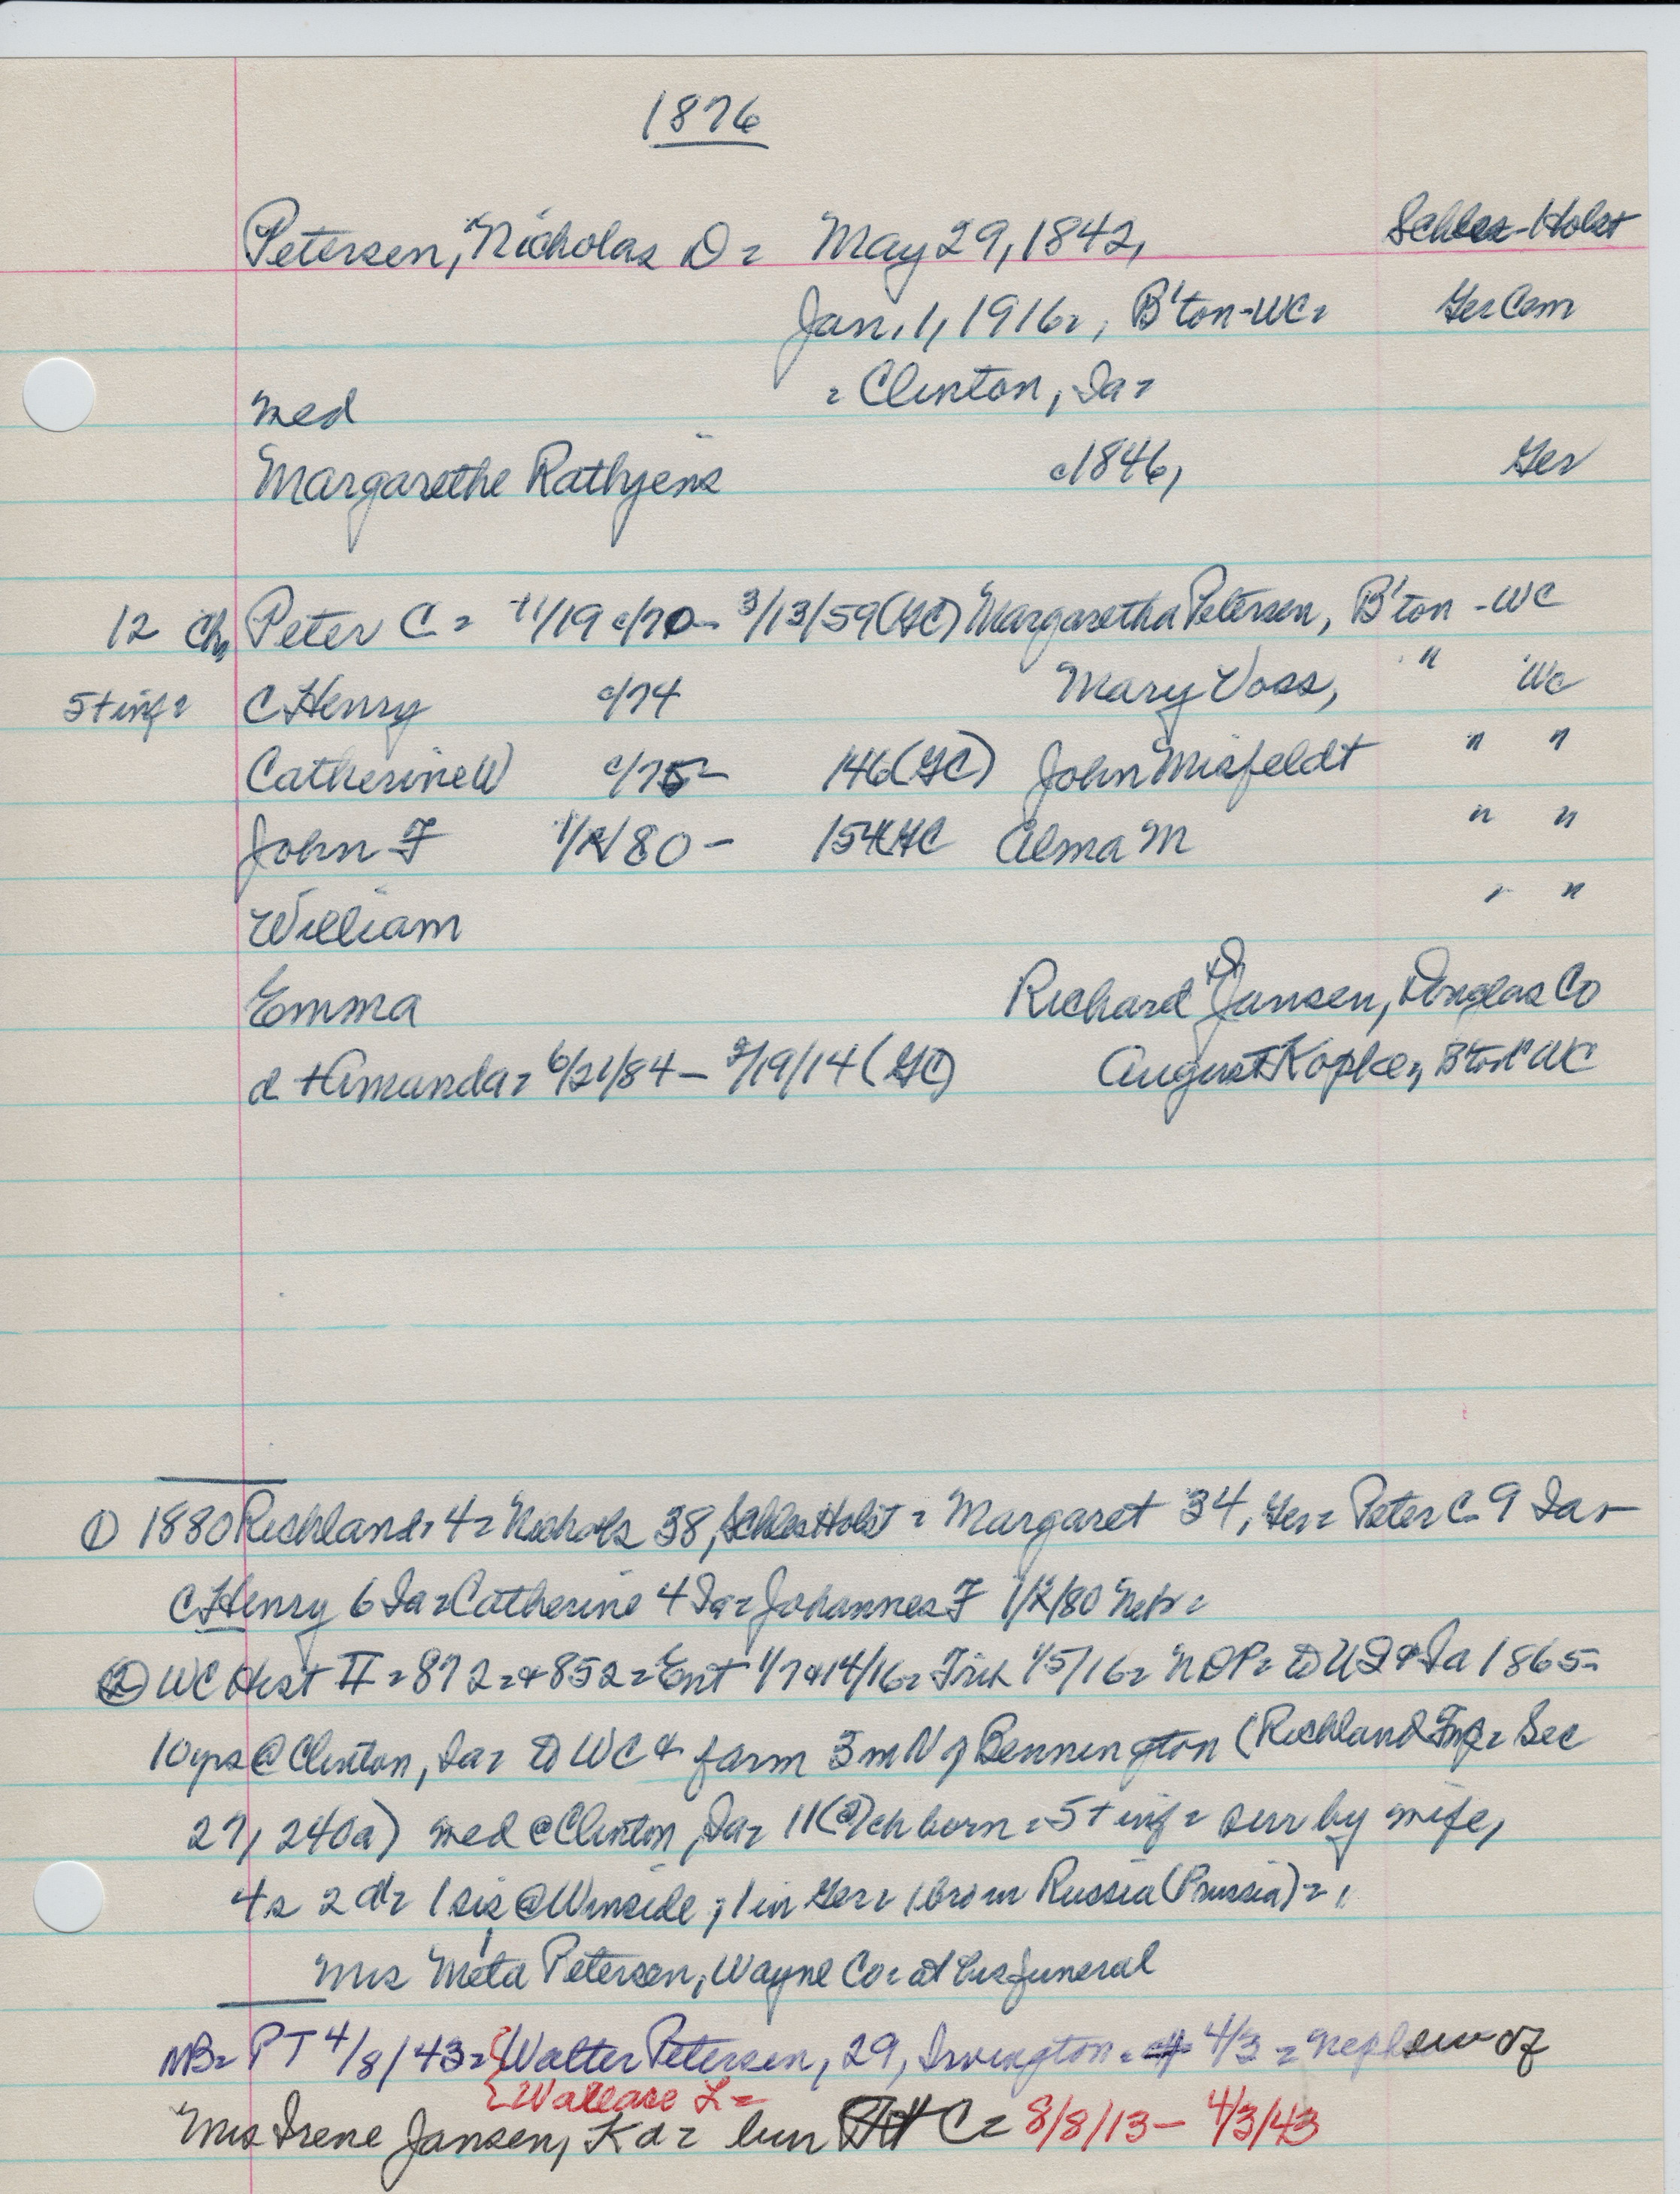 1876
Petersen, Nicholas D = May 29, 1842, Schles-Holst
Jan. 1, 1916 = , B'ton-WC = Ger Cem
med = Clinton, Ia =
Margarethe Rathjens c1846, Ger
12 Ch, Peter C = 11/19 c/70 - 3/13/59 (GC) Margaretha Petersen, B'ton - WC
5 t inf = C Henry c/74 Mary Voss, " WC
Catherine W c/75 - 146 (GC) John Misfeldt " "
John F 1/12/80 - 154 GC Alma M " "
William " "
Emma Richard D Jansen, Douglas Co
d + Amanda = 6/21/84 - 9/19/14 (GC) August Kopke, B'ton WC
① 1880 Richland, 4 = Nichols 38, Schles Holst = Margaret 34, Ger = Peter C - 9 Ia -
C Henry 6 Ia = Catherine 4 Ia = Johannes F 1/12/80 Nebr =
② WC Hist II = 872 = + 852 = Ent 1/7 & 14/16 = Trib 1/5/16 = NDP = to US & Ia 1865 =
10 yrs @ Clinton, Ia = to WC & farm 3 m N of Bennington (Richland Twp = Sec
27, 240a) med @ Clinton, Ia = 11 (?) ch born = 5 t inf = surr by wife,
4 s 2 d = 1 sis @ Winside, ; 1 in Ger = 1 bro in Russia (Prussia) = ,
Mrs Meta Petersen, Wayne Co = at his funeral
NB = PT 4/8/43 = Walter Petersen, 29, Irvington = 4/3 = nephew of
Wallace L =
Mrs Irene Jansen, Kd = bur C = 8/8/13 - 4/3/43